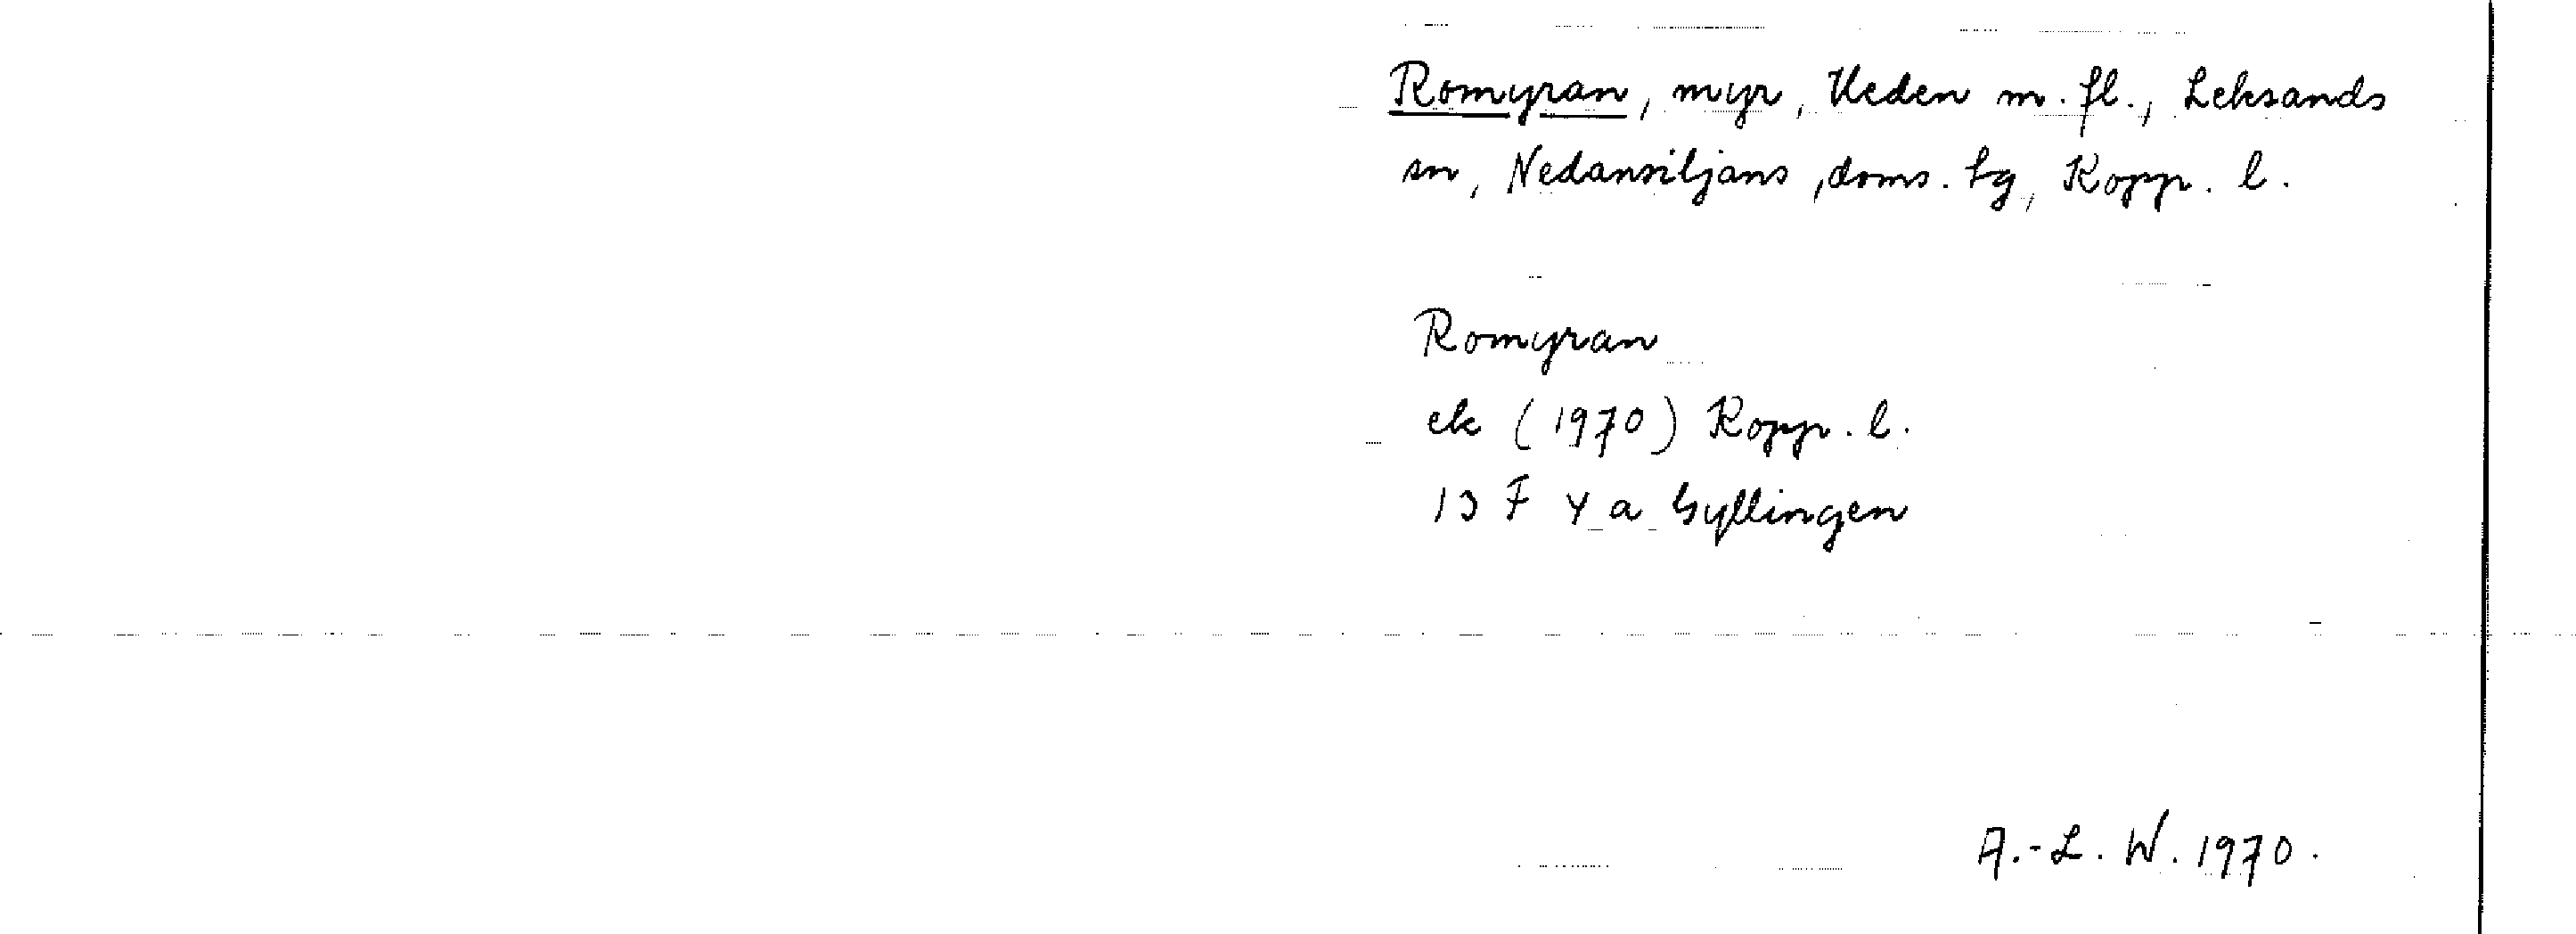 Romyran, myr, Heden m. fl., Leksands
sn, Nedansiljans, doms. tg, Kopp. l.
Romyran
ek (1970) Kopp. l.
13 F 4 a Gyllingen
A.-L. W. 1970.